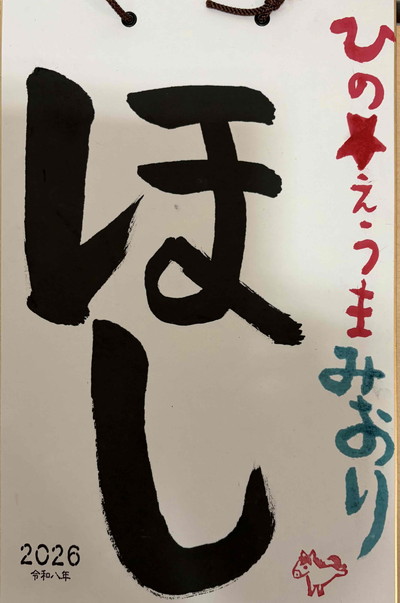 ひの★えうま
みおり
ほし
2026
令和八年